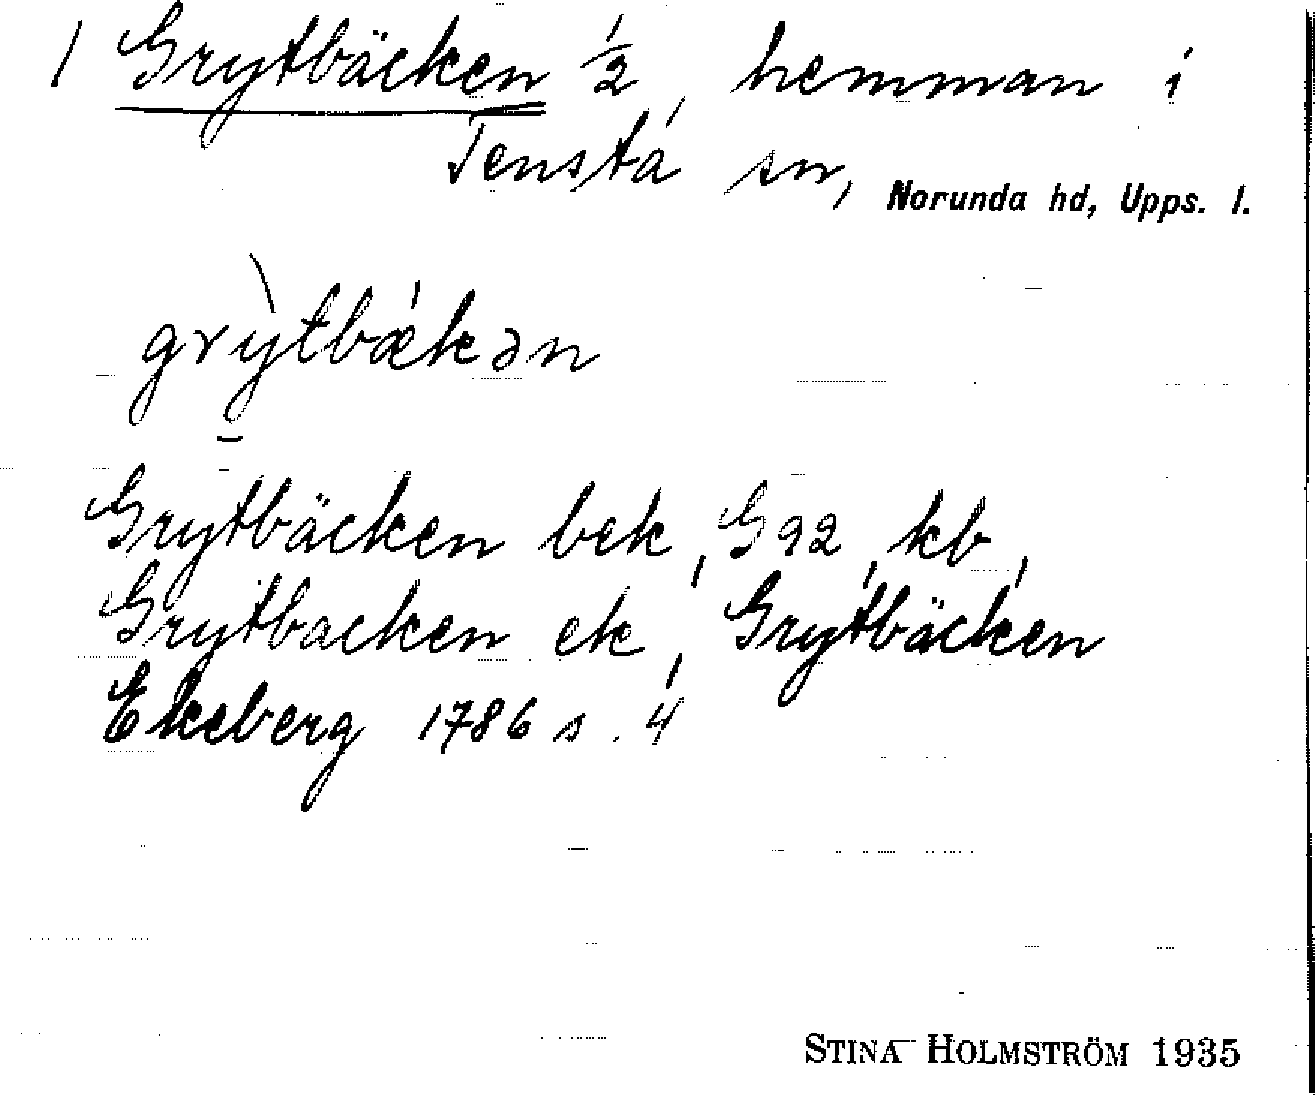 1 Grytbäcken 1/2, hemman i
Tensta sn, Norunda hd, Upps. l.
grỳtbǽkən
Grytbäcken bek, G92, kb,
Grytbacken ek, Grytbäcken
Ekeberg 1786 s. 4
STINA HOLMSTRÖM 1935